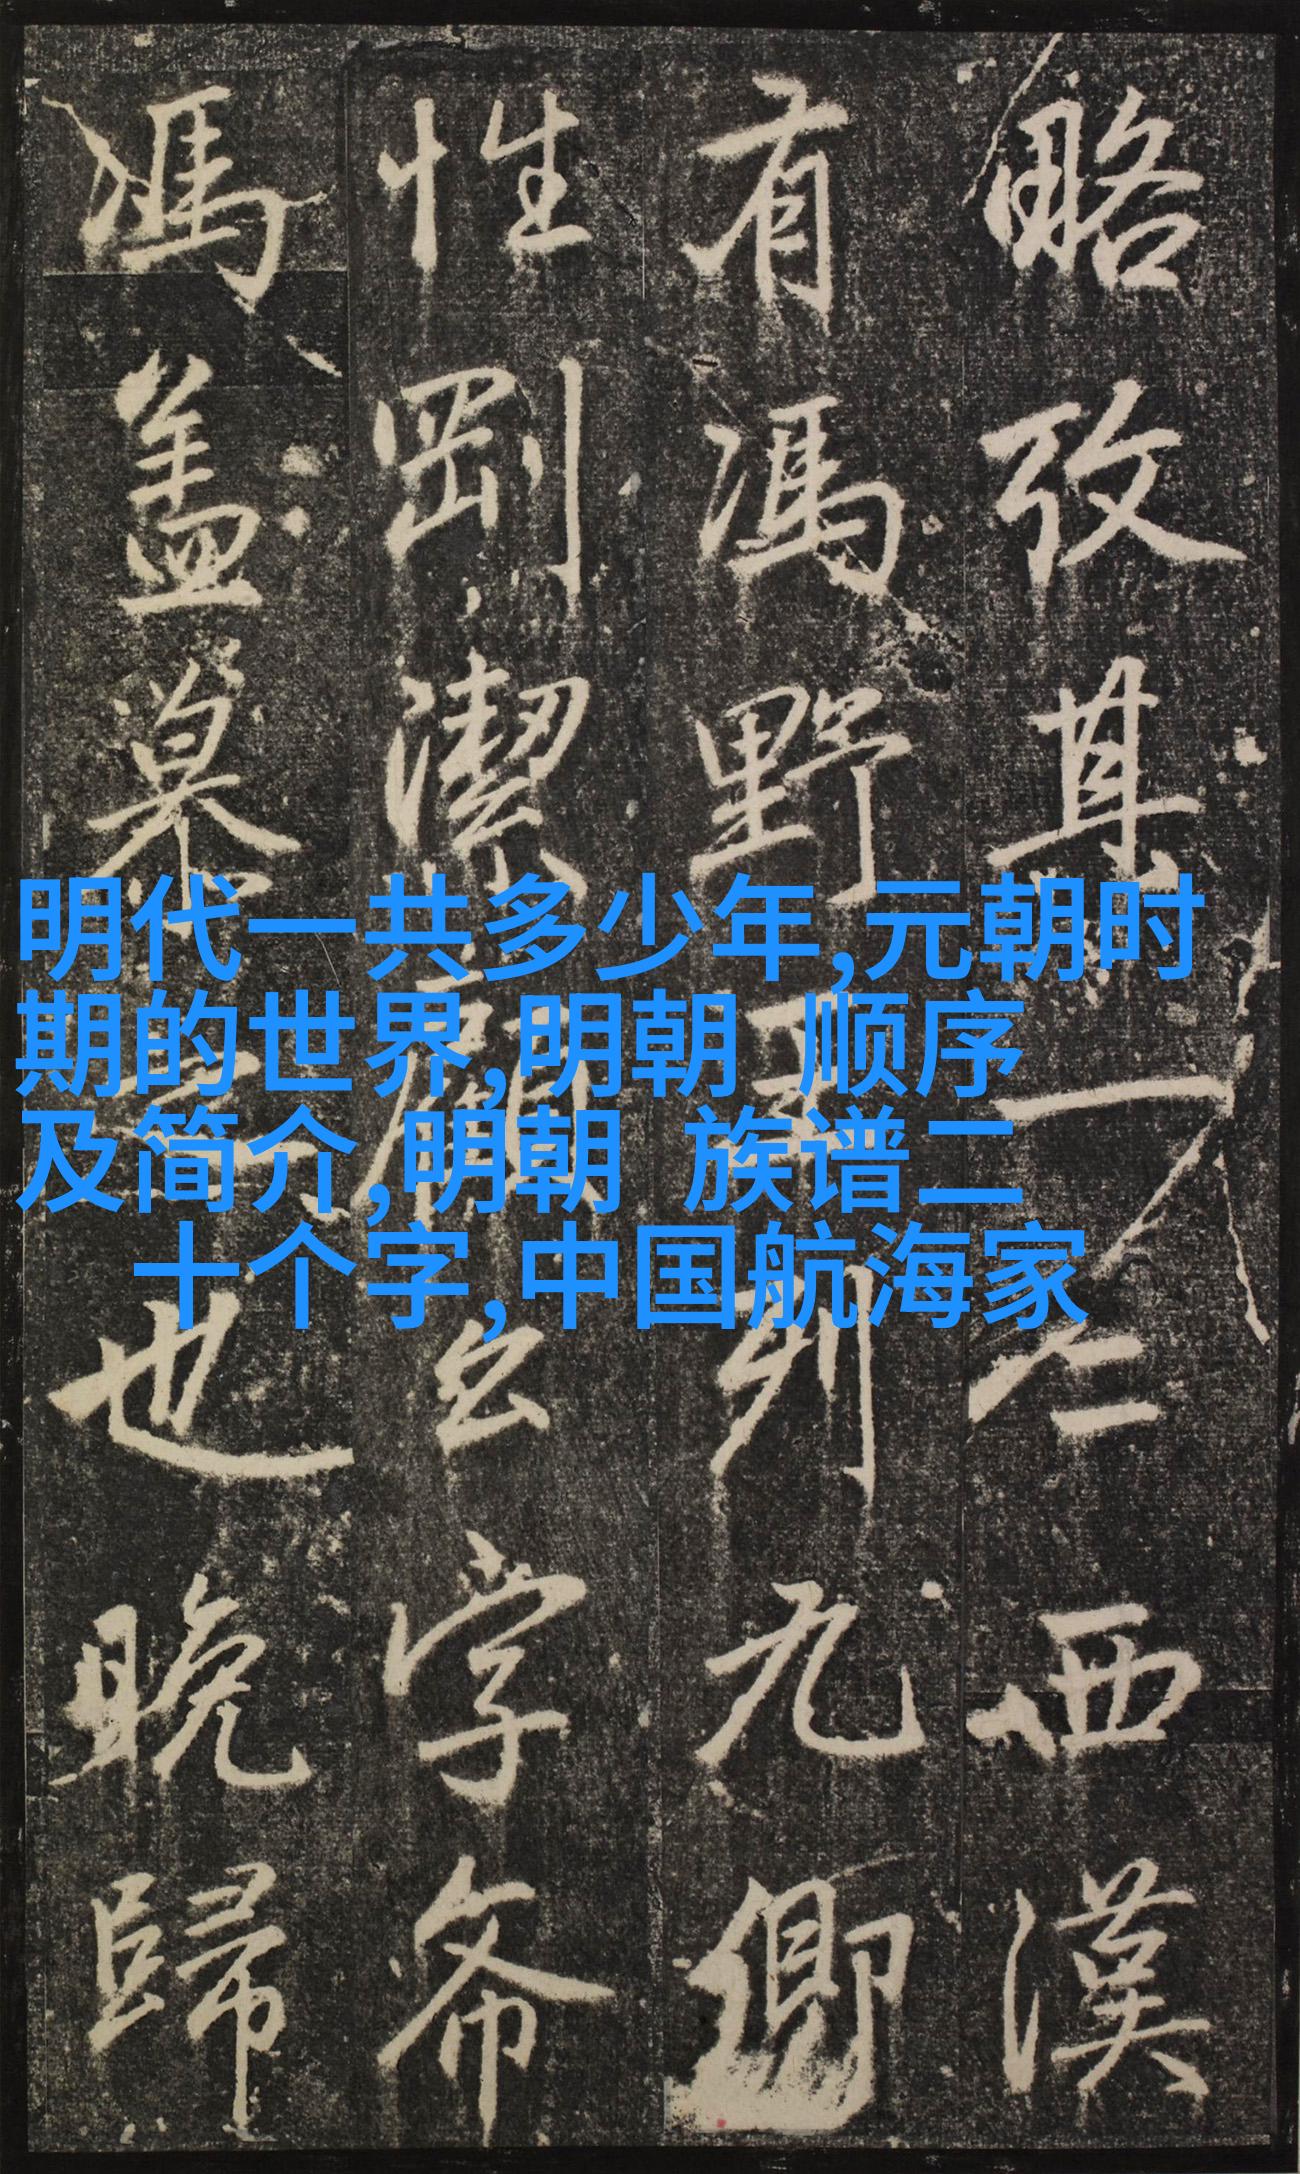 明代一共多少年,元朝时
期的世界,明朝 顺序
及简介,明朝 族谱二
十个字,中国航海家
略攷其一二西漢
有馮野王列九卿
性剛潔顧公字希
馮盖慕之也晚歸